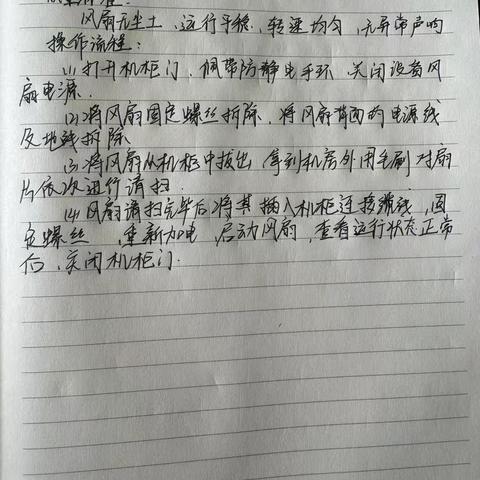 风扇无尘土、运行平稳、转速均匀、无异常声响
操作流程：
(1)打开机柜门、佩带防静电手环、关闭设备风
扇电源.
(2)将风扇固定螺丝拆除、将风扇背面的电源线
及地线拆除.
(3)将风扇从机柜中拔出、拿到机房外用毛刷对扇
片依次进行清扫.
(4)风扇清扫完毕后将其插入机柜连接缆线、固
定螺丝、重新加电、启动风扇、查看运行状态正常
后、关闭机柜门.